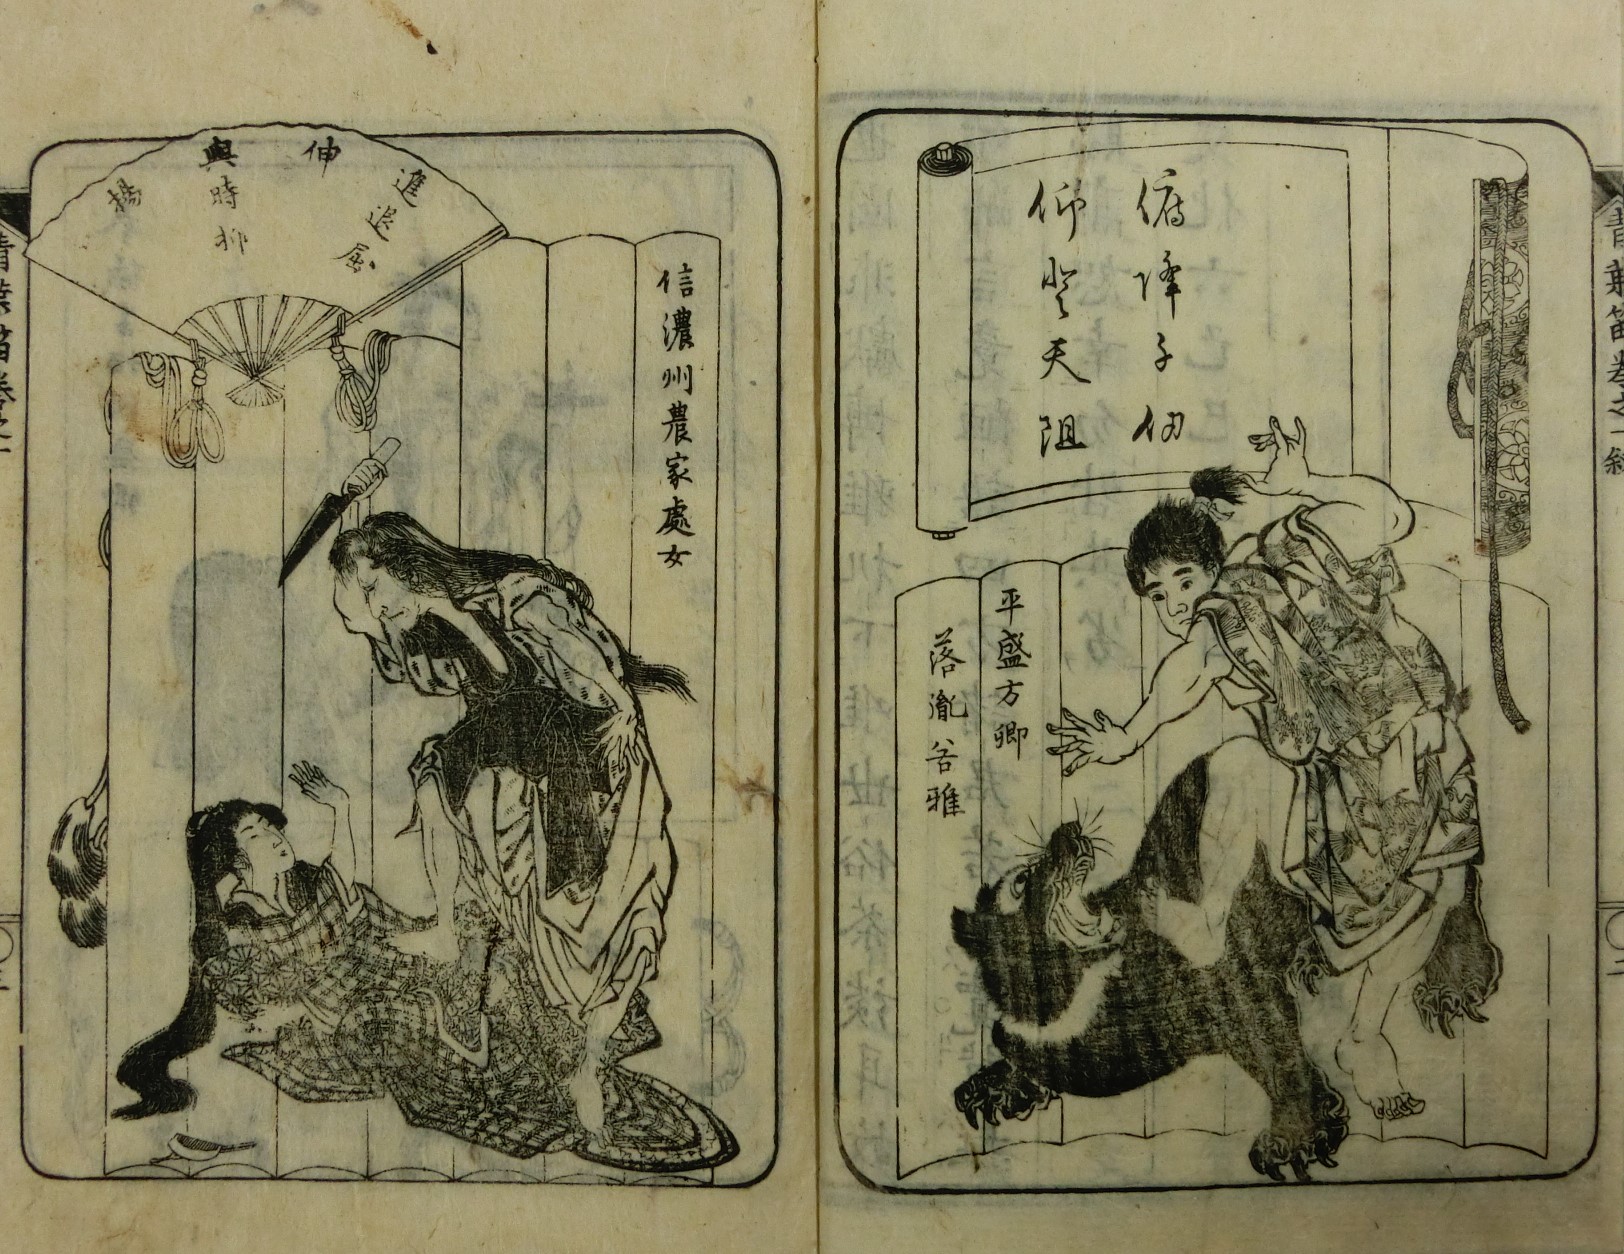 青葉笛巻之一
俯降子仞
仰登天阻
平盛方卿
落胤 雅
信濃州農家處女
進退屈
伸
與時抑
揚
青葉笛巻之一